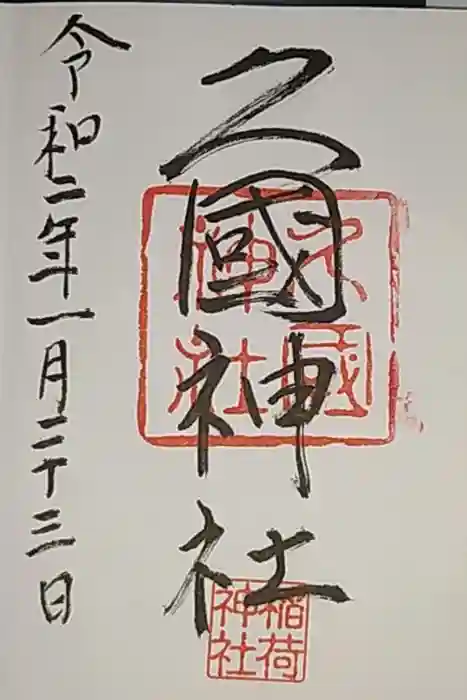 久國神社
令和二年一月二十三日
久國
神社
稲荷
神社